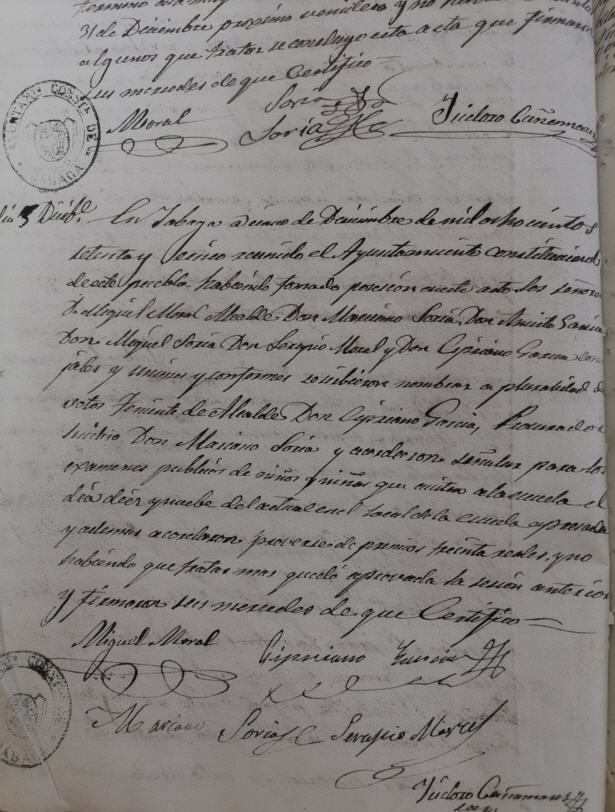 31 de Diciembre proximo venidero y no
algunos que tratar se concluyo esta acta que firmaron
sus mercedes de que Certifico
Moral
Soria
Soria
Ysidoro Cañamares
CONSTL DE
JABAGA
Dia 5 Dicbe. En Jabaga a cinco de Diciembre de mil ochocientos
setenta y cinco reunido el Ayuntamiento constitucional
de este pueblo habiendo tomado posesion en este acto los señores
Dn. Miguel Moral Alcalde Don Mariano Soria, Don Garcia
Don Miguel Soria Don Serapio Moral y Don Cipriano Garcia con
jales y unimes y conformes nombrar a pluralidad de
votos Teniente de Alcalde Don Cipriano Garcia, Procurador
Sindico Don Mariano Soria y acordaron señalar para los
examenes publicos de niños y niñas que a la escuela el
dia diez y nuebe del actual en el local de la escuela
y ademas acordaron proverse de premios treinta reales, y no
habiendo que tratar mas quedó aprovada la sesión anterior
y firmaron sus mercedes de que Certifico
Miguel Moral
Cipriano Garcia
Mariano Soria
Serapio Moral
Ysidoro Cañamares